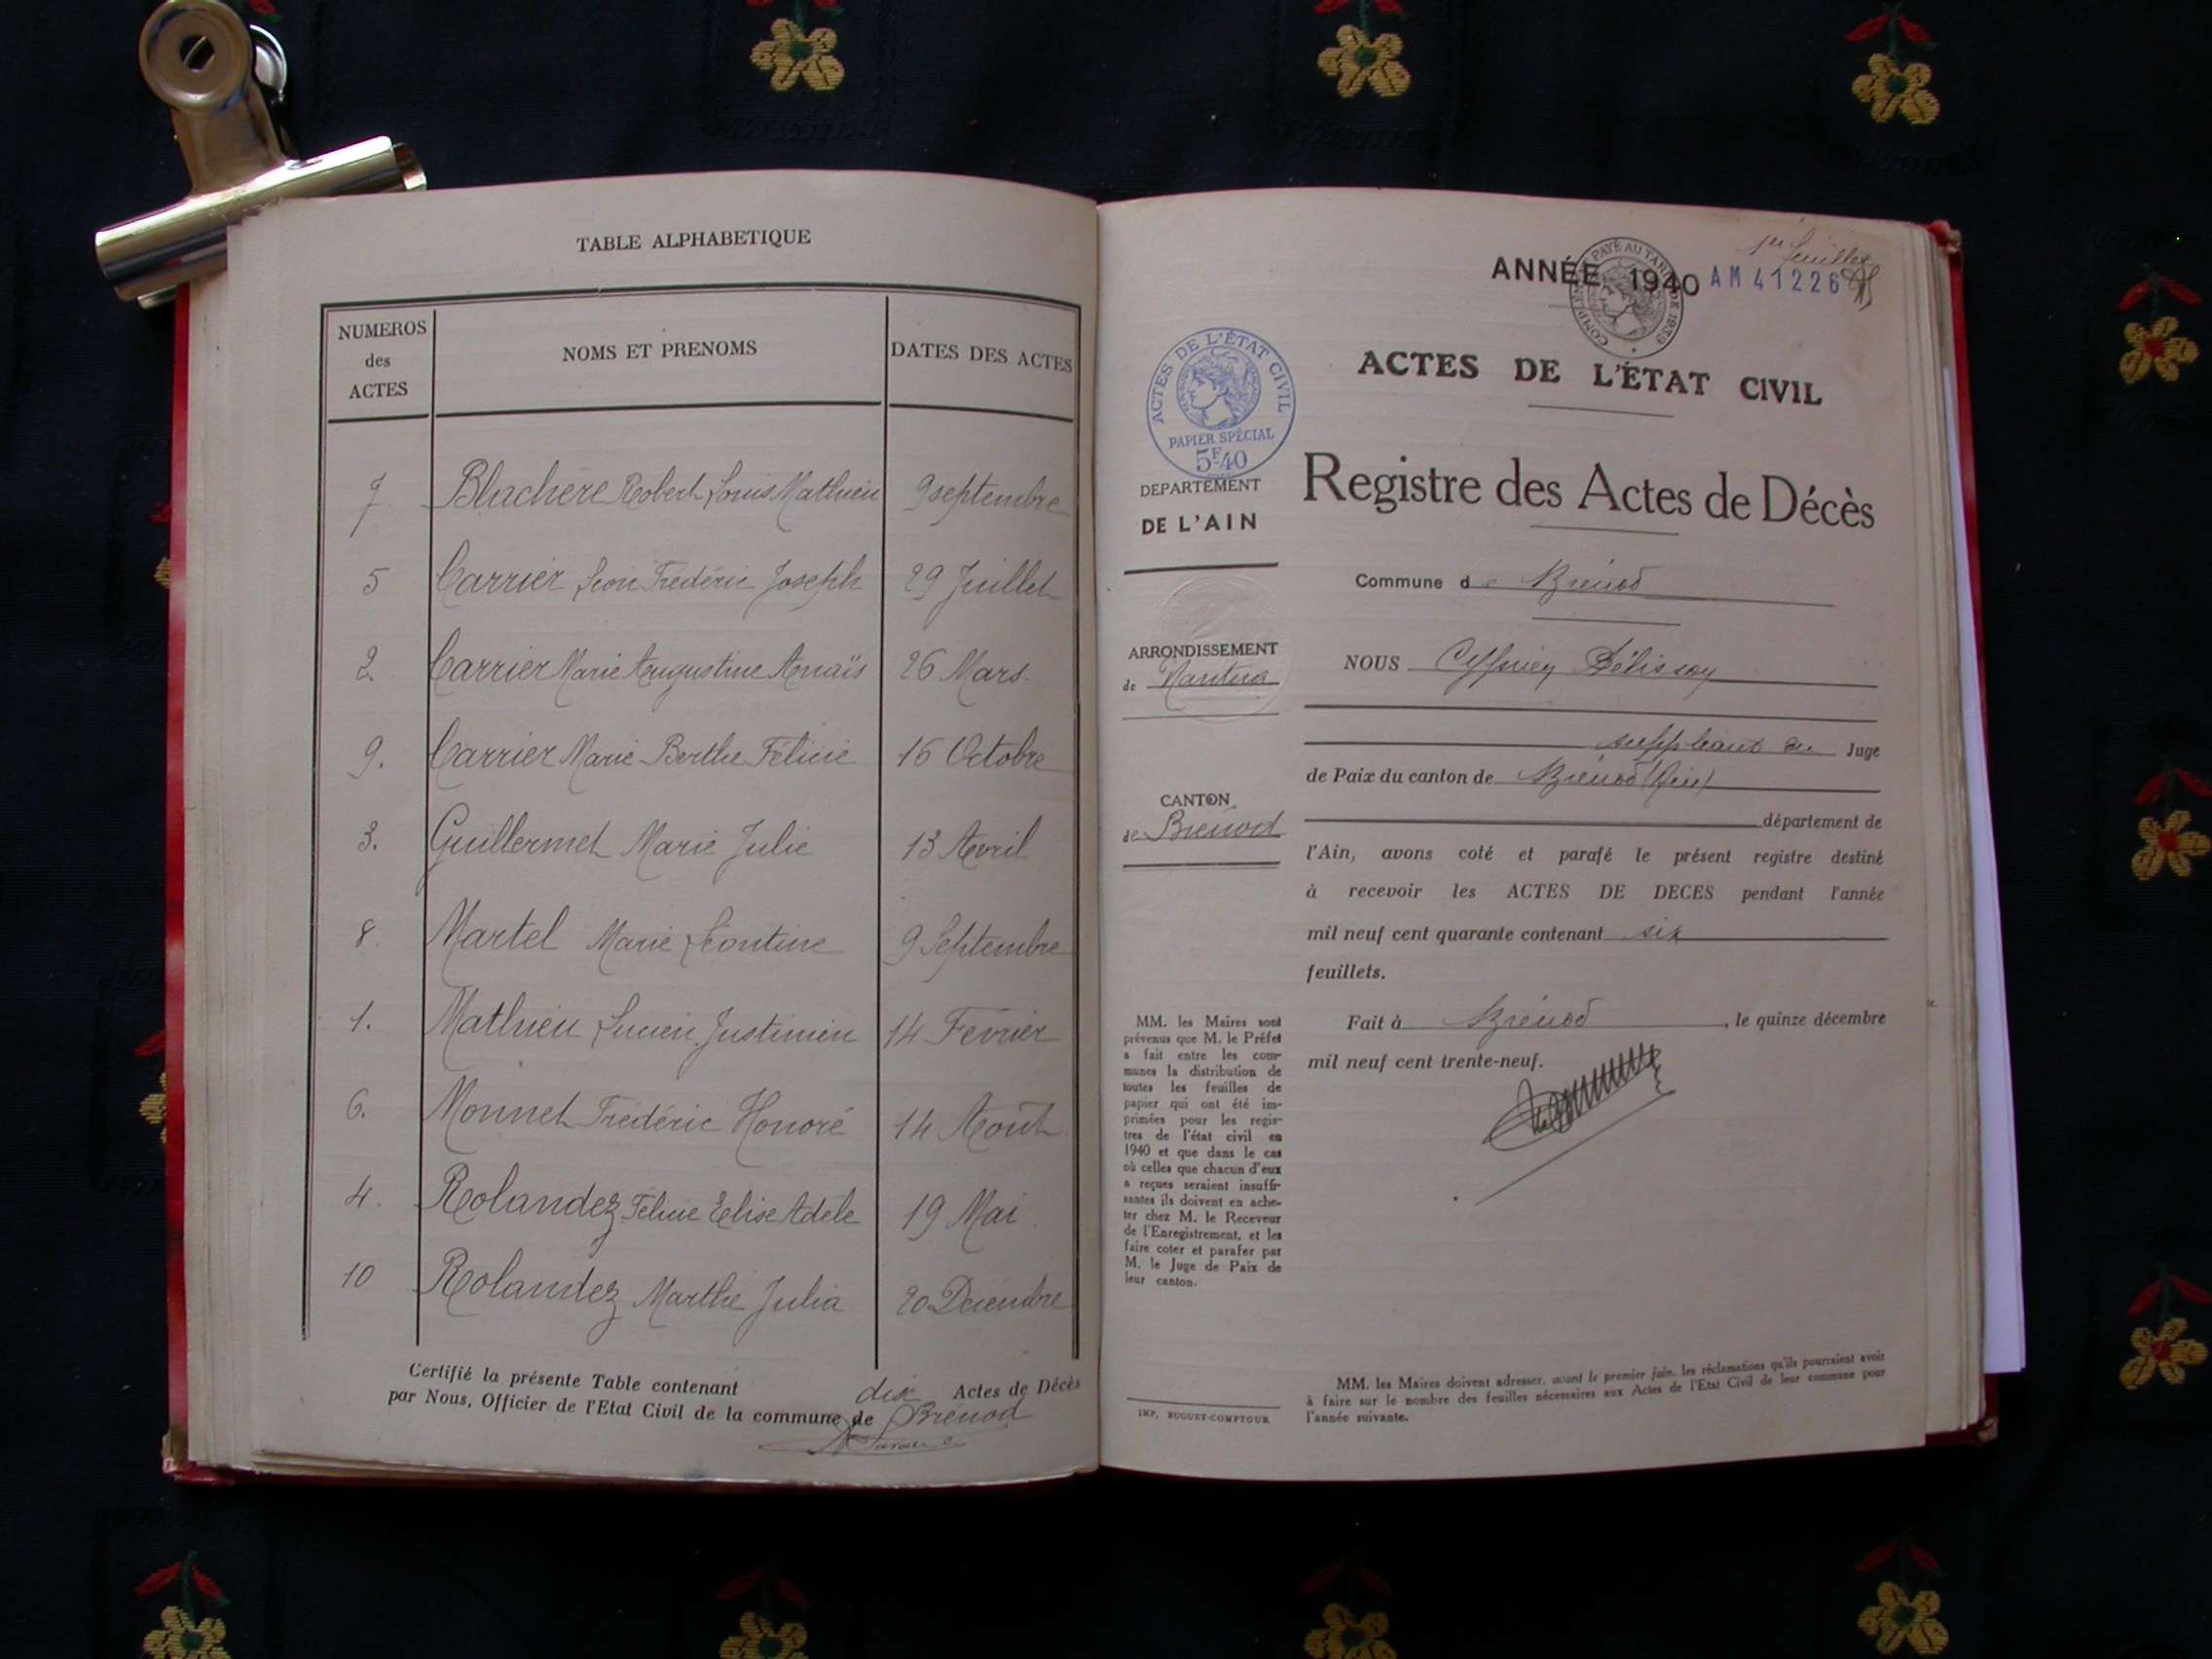 TABLE ALPHABETIQUE
NUMEROS
des
ACTES
NOMS ET PRENOMS
DATES DES ACTES
7 Blachère Robert Louis Mathieu 9 septembre
5 Carrier Léon Frédéric Joseph 29 Juillet
2. Carrier Marie Augustine Anaïs 26 Mars.
9. Carrier Marie Berthe Félicie 16 Octobre
3. Guillermet Marie Julie 13 Avril
8. Martel Marie Léontine 9 Septembre
1. Mathieu Lucien Justinien 14 Février
6. Monnet Frédéric Honoré 14 Août
4. Rolandez Félicie Elise Adèle 19 Mai.
10 Rolandez Marthe Julia 20 Décembre
Certifié la présente Table contenant dix Actes de Décès
par Nous, Officier de l'Etat Civil de la commune de Brénod
1er feuillet
ANNÉE 1940 AM 41226
COMPLEMENT PAYÉ AU TARIF DE 1939
ACTES DE L'ÉTAT CIVIL
PAPIER SPÉCIAL
5F40
ACTES DE L'ÉTAT CIVIL
Registre des Actes de Décès
DEPARTEMENT
DE L'AIN
Commune de Brénod
ARRONDISSEMENT
de Nantua
NOUS
suppléant du Juge
de Paix du canton de Brénod (Ain)
CANTON
de Brénod
département de
l'Ain, avons coté et parafé le présent registre destiné
à recevoir les ACTES DE DECES pendant l'année
mil neuf cent quarante contenant six
feuillets.
Fait à Brénod, le quinze décembre
mil neuf cent trente-neuf.
MM. les Maires sont
prévenus que M. le Préfet
a fait entre les com-
munes la distribution de
toutes les feuilles de
papier qui ont été im-
primées pour les regis-
tres de l'état civil en
1940 et que dans le cas
où celles que chacun d'eux
a reçues seraient insuffi-
santes ils doivent en ache-
ter chez M. le Receveur
de l'Enregistrement, et les
faire coter et parafer par
M. le Juge de Paix de
leur canton.
IMP. BUGUET-COMPTOUR
MM. les Maires doivent adresser, avant le premier juin, les réclamations qu'ils pourraient avoir
à faire sur le nombre des feuilles nécessaires aux Actes de l'Etat Civil de leur commune pour
l'année suivante.